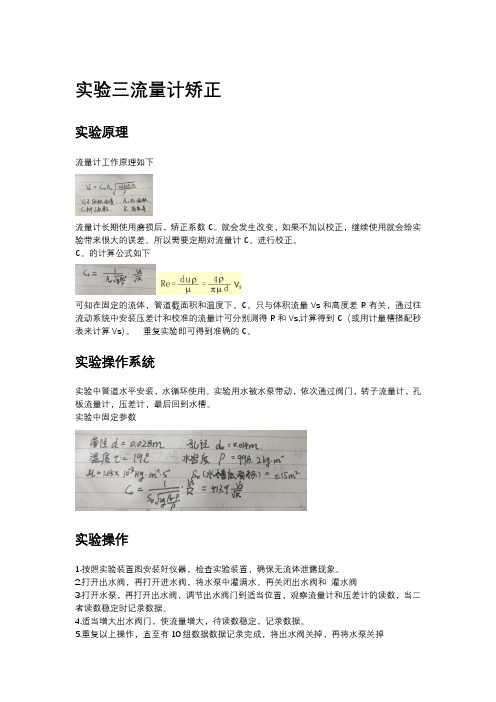 实验三流量计矫正
实验原理
流量计工作原理如下
流量计长期使用磨损后，矫正系数 C。就会发生改变，如果不加以校正，继续使用就会给实
验带来很大的误差。所以需要定期对流量计 C。进行校正。
C。的计算公式如下
Re = duρ/μ = 4ρ/πμd Vs
可知在固定的流体，管道截面积和温度下，C。只与体积流量 Vs 和高度差 R 有关，通过往
流动系统中安装压差计和校准的流量计可分别测得 R 和 Vs,计算得到 C（或用计量槽搭配秒
表来计算 Vs）。 重复实验即可得到准确的 C。
实验操作系统
实验中管道水平安装，水循环使用。实验用水被水泵带动，依次通过阀门，转子流量计，孔
板流量计，压差计，最后回到水槽。
实验中固定参数
管径 d = 0.028m 孔径 do = 0.014m.
温度 t = 19℃ 水密度 ρ = 998.2kg·m⁻³
实验操作
1.按照实验装置图安装好仪器，检查实验装置，确保无流体泄露现象。
2.打开出水阀，再打开进水阀，将水泵中灌满水。再关闭出水阀和 灌水阀
3.打开水泵，再打开出水阀，调节出水阀门到适当位置，观察流量计和压差计的读数，当二
者读数稳定时记录数据。
4.适当增大出水阀门，使流量增大，待读数稳定，记录数据。
5.重复以上操作，直至有 10 组数据数据记录完成，将出水阀关掉，再将水泵关掉